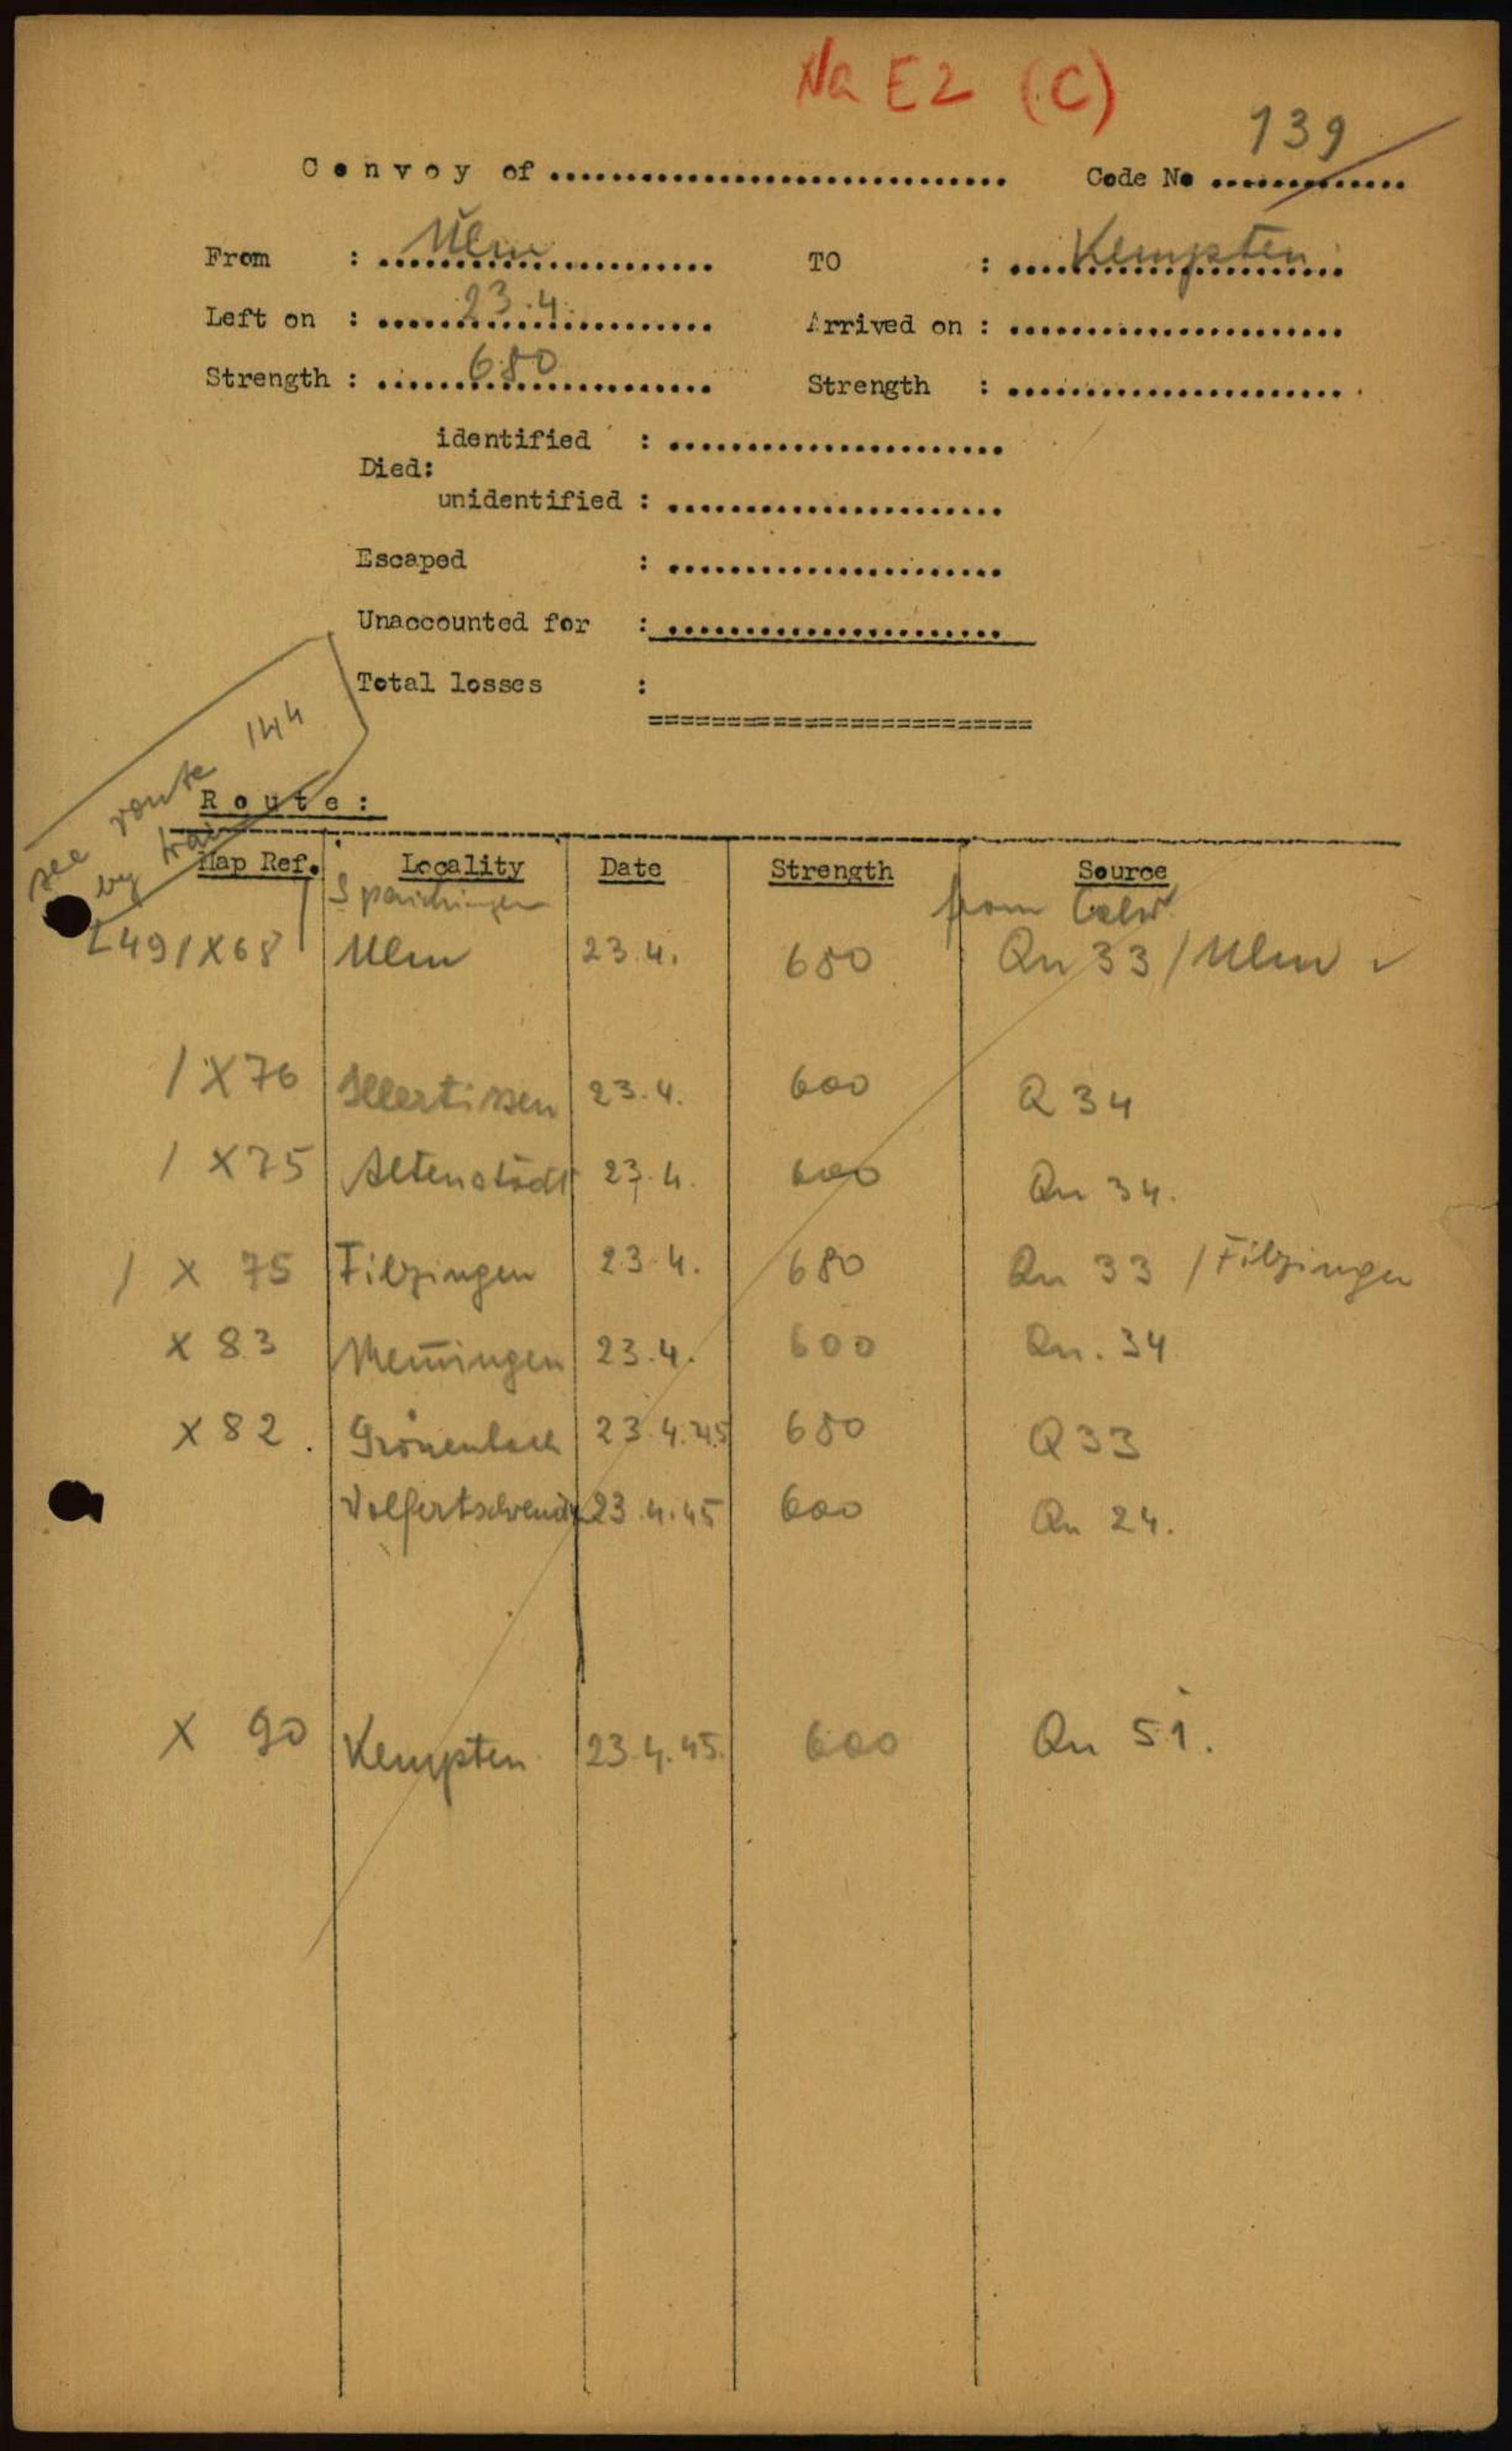 Na E2 (C)
139
Convoy of .............................. Code No .............
From : Ulm TO : Kempten
Left on : 23.4. Arrived on : ......................
Strength : 680 Strength : ......................
identified : ......................
Died:
unidentified : ......................
Escaped : ......................
Unaccounted for : ......................
Total losses :
=========================
see route 144
by train
Route:
Map Ref. Locality Date Strength Source
Spaichingen from Calw
L49/X68 Ulm 23.4. 680 Qu 33/Ulm ✓
/ X76 Illertissen 23.4. 600 Q 34
/ X75 Altenstadt 23.4. 600 Qu 34.
/ X 75 Filzingen 23.4. 680 Qu 33 / Filzingen
X 83 Mem̄ingen 23.4. 600 Qu. 34
X 82. Grönenbach 23.4.45 680 Q33
Volfertschwende 23.4.45 600 Qu 24.
X 90 Kempten 23.4.45. 600 Qu 51.